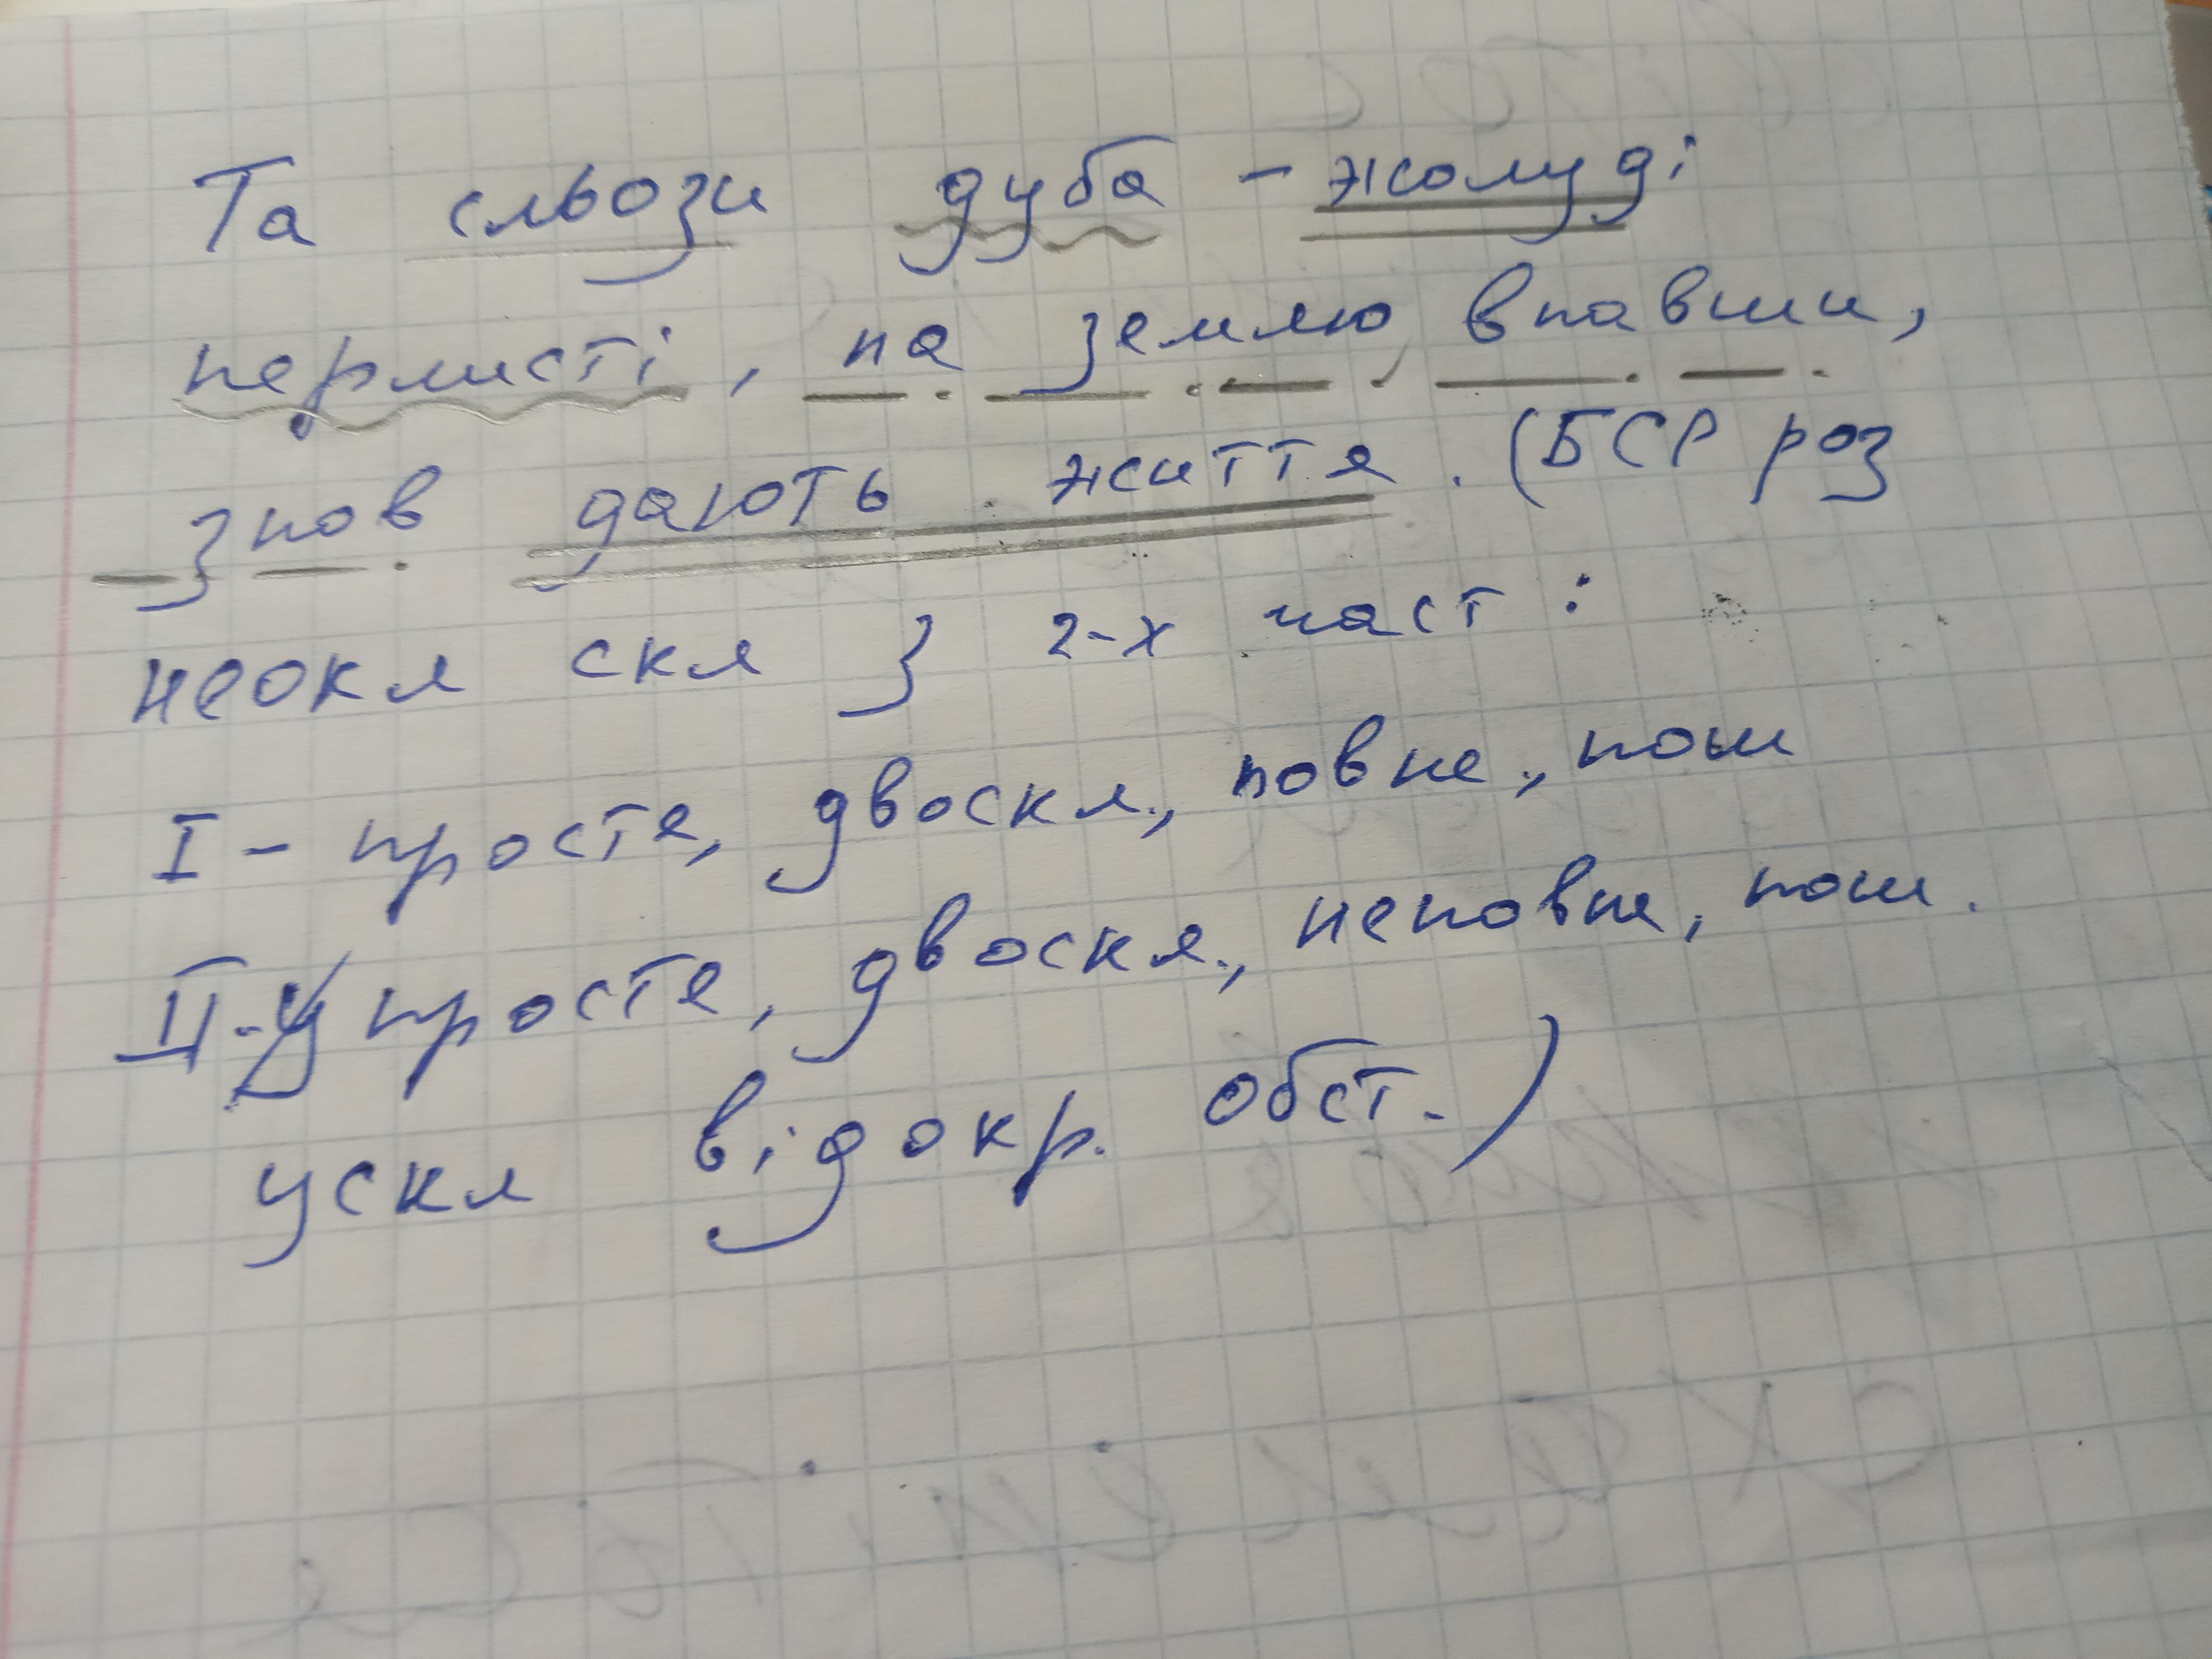 Та сльози дуба - жолуді
перлисті, на землю впавши,
знов дають життя. (БСР роз
неокл скл з 2-х част:
I - просте, двоскл., повне., пош
II - просте, двоскл., неповне, пош.
ускл відокр. обст.)